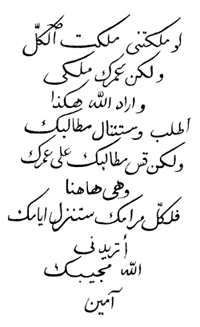 لو ملكتني ملكت الكلّ
ولكن عمرك ملكي
واراد الله هكذا
اطلب وستنال مطالبك
ولكن قس مطالبك على عمرك
وهي هاهنا
فلكلّ مرامك ستنزل ايامك
أتريدني
الله مجيبك
آمين